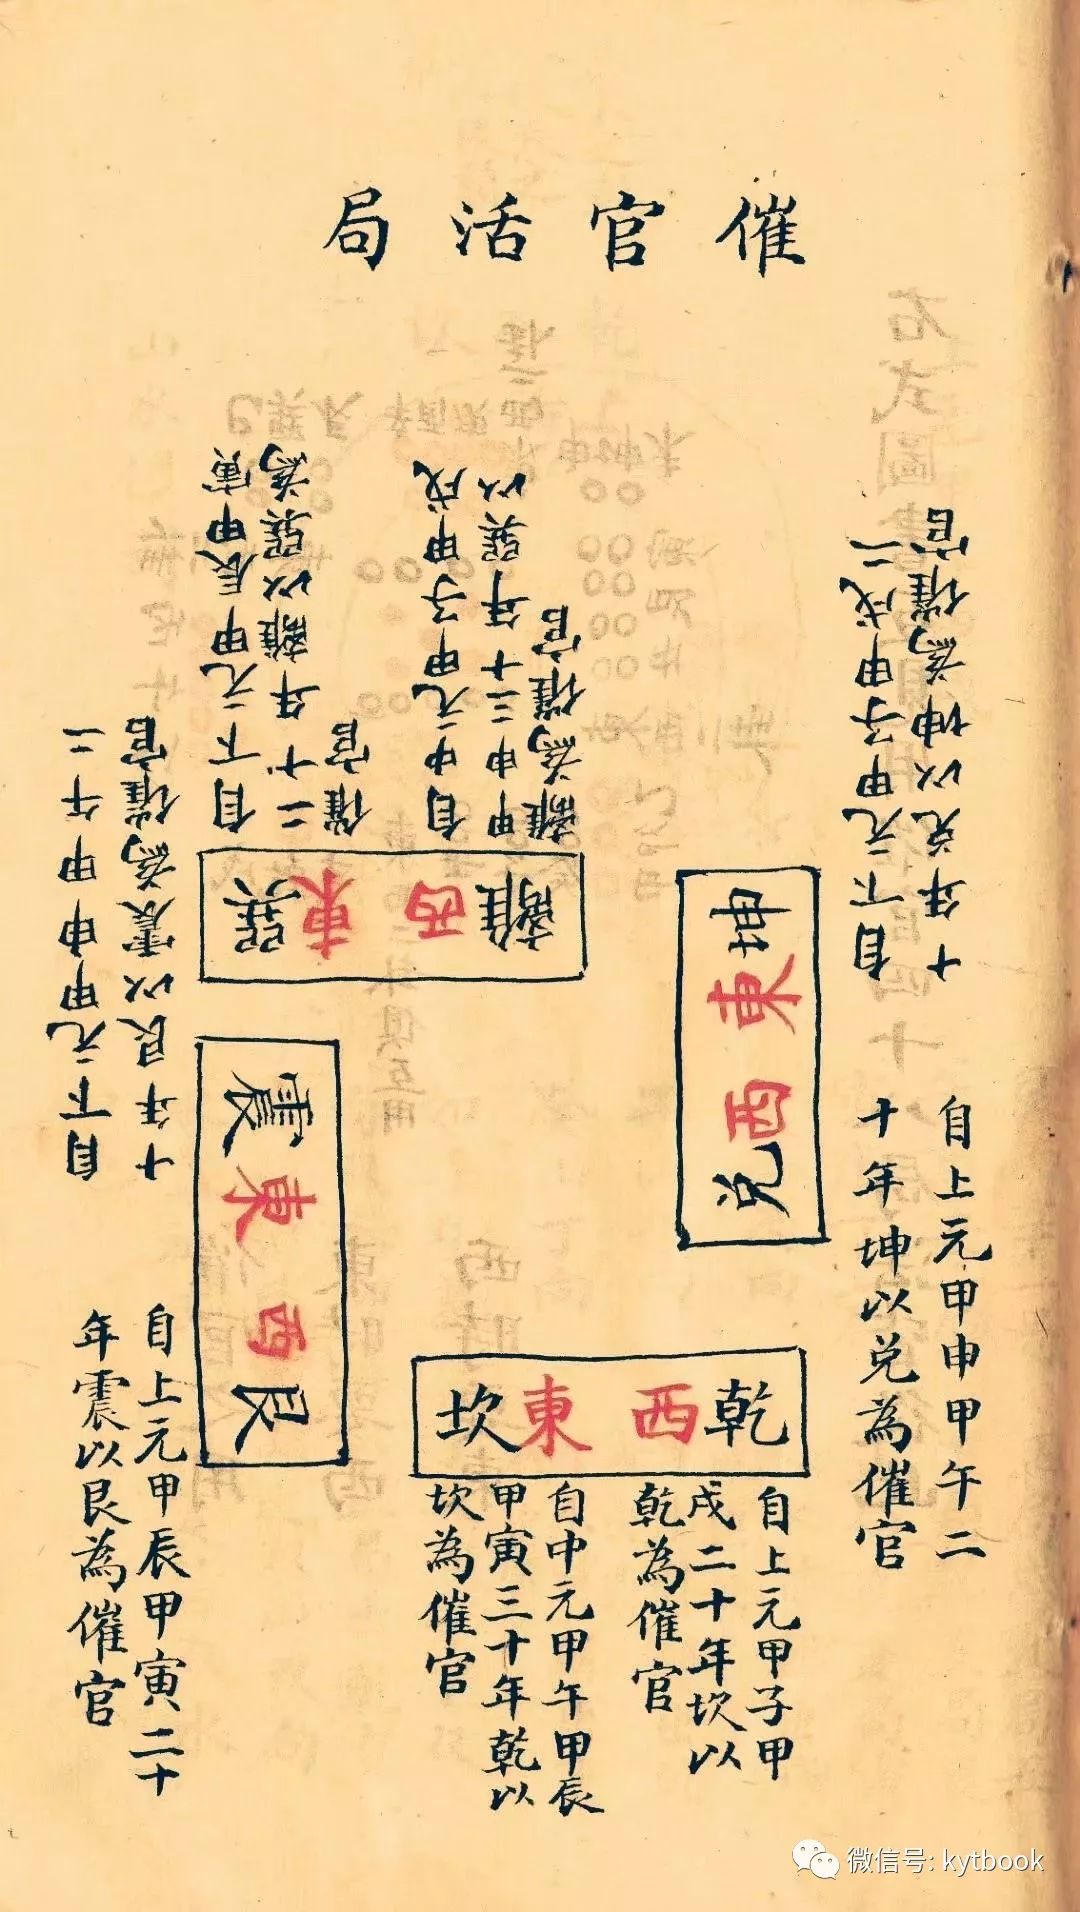 催官活局
自下元甲子甲戌二
十年兑以坤為催官
坤東西兑
自上元甲申甲午二
十年坤以兑為催官
自中元甲子甲戌
甲申三十年巽以
離為催官
自下元甲辰甲寅
二十年離以巽為
催官
離西東巽
自下元甲申甲午二
十年艮以震為催官
震東西艮
自上元甲辰甲寅二十
年震以艮為催官
坎東西乾
自上元甲子甲
戌二十年坎以
乾為催官
自中元甲午甲辰
甲寅三十年乾以
坎為催官
微信号: kytbook